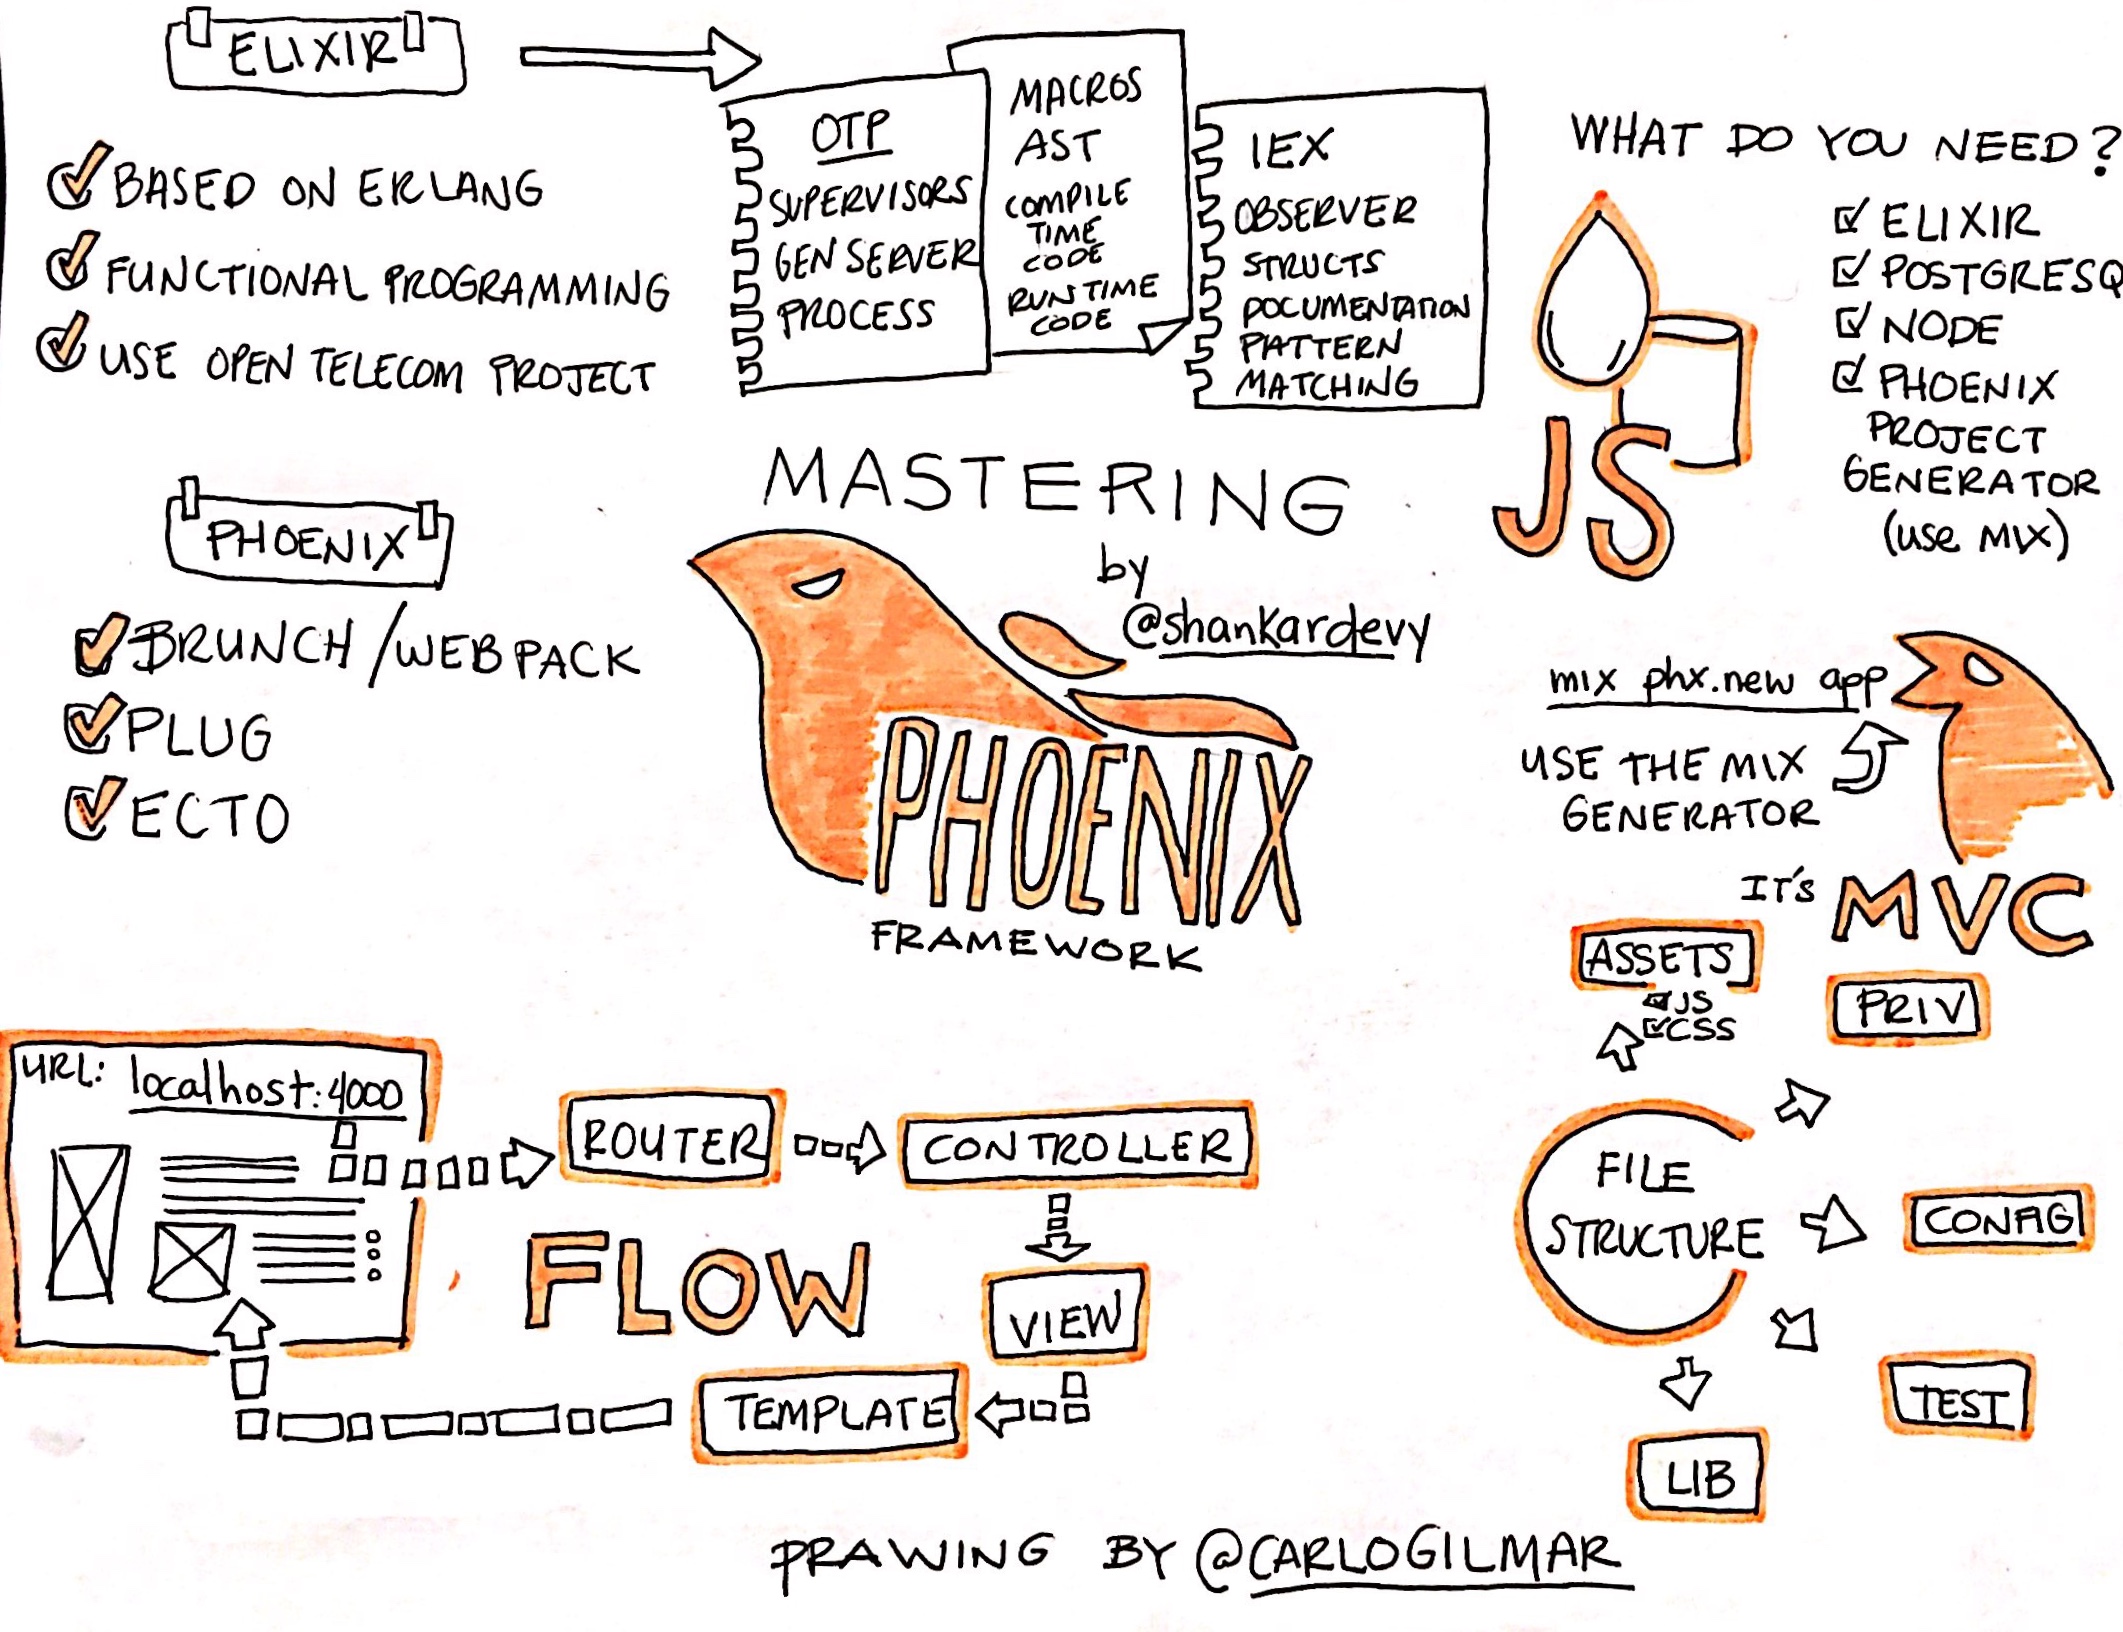 ELIXIR
BASED ON ERLANG
FUNCTIONAL PROGRAMMING
USE OPEN TELECOM PROJECT
OTP
SUPERVISORS
GEN SERVER
PROCESS
MACROS
AST
COMPILE
TIME
CODE
RUNTIME
CODE
IEX
OBSERVER
STRUCTS
DOCUMENTATION
PATTERN
MATCHING
WHAT DO YOU NEED?
ELIXIR
POSTGRESQ
NODE
PHOENIX
PROJECT
GENERATOR
(use MIX)
JS
PHOENIX
BRUNCH/WEBPACK
PLUG
ECTO
MASTERING
by
@shankardevy
PHOENIX
FRAMEWORK
mix phx.new app
USE THE MIX
GENERATOR
IT'S MVC
ASSETS
JS
CSS
PRIV
FILE
STRUCTURE
CONFIG
TEST
LIB
URL: localhost:4000
ROUTER
CONTROLLER
FLOW
VIEW
TEMPLATE
DRAWING BY @CARLOGILMAR